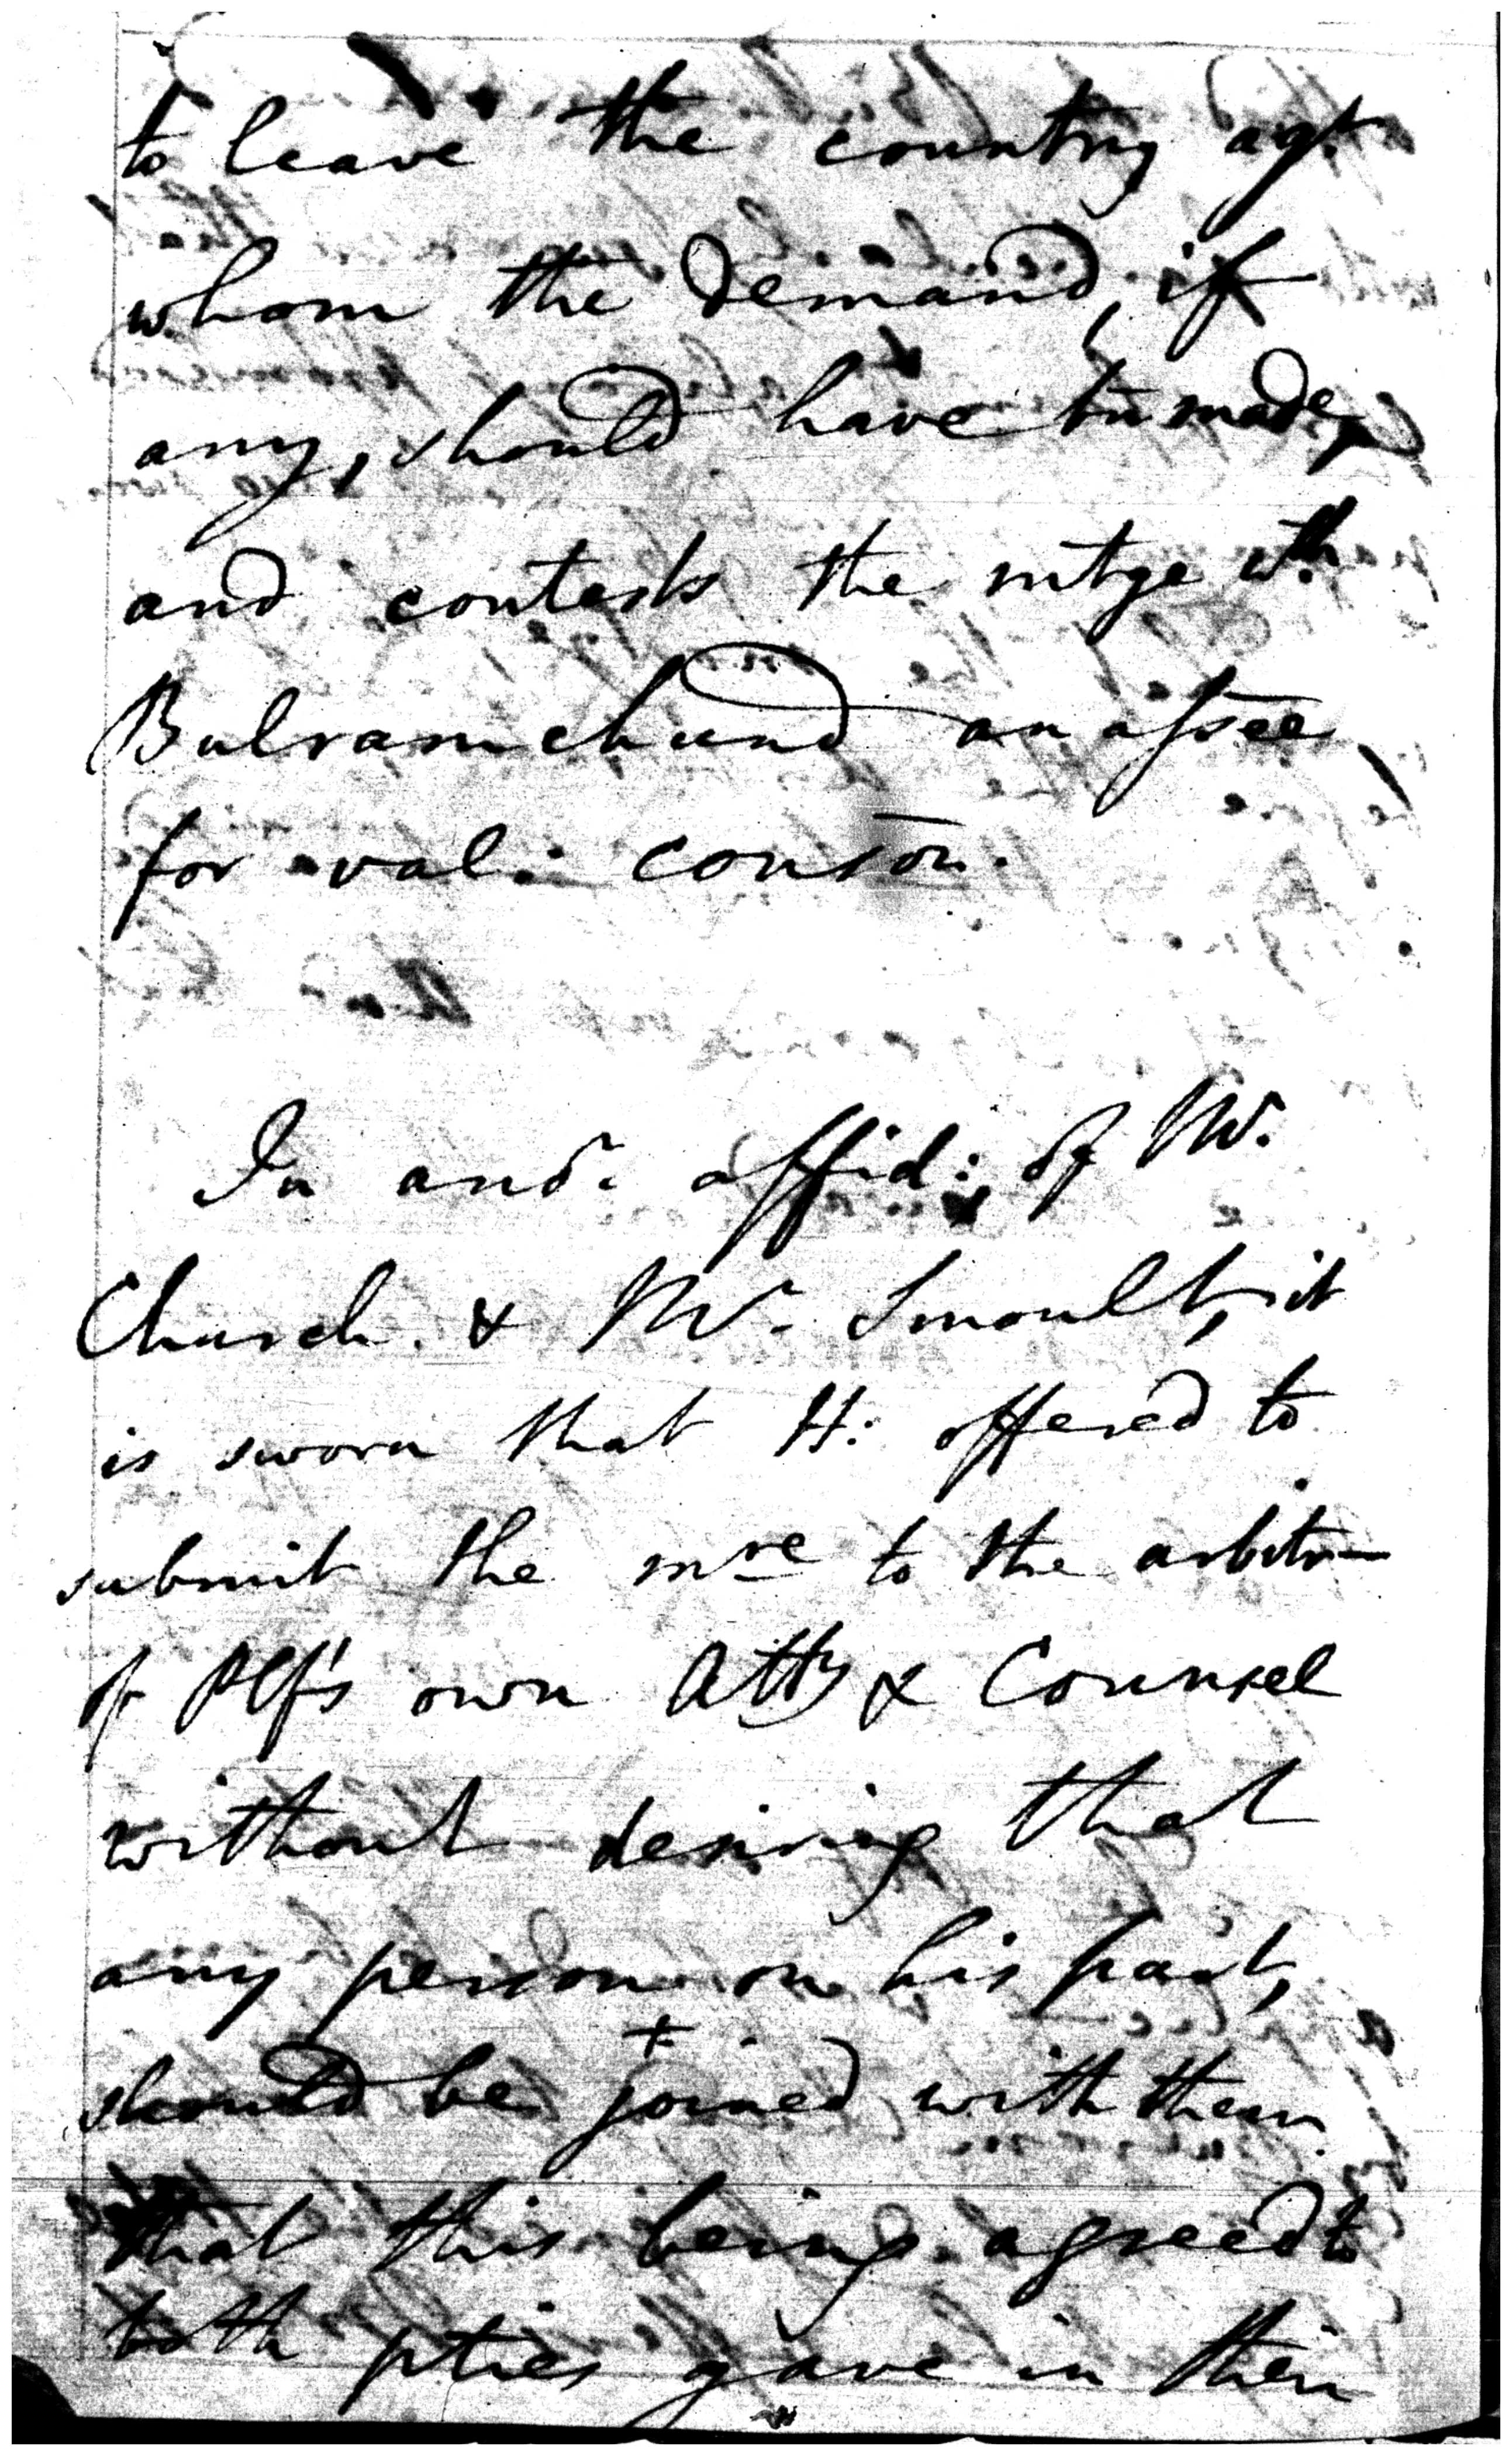 to leave the country agt
whom the demand, if
any, should have bn made,
and contests the mtge wth
Bulramchund an assee
for val: conson.
In anor. affid: of Mr.
Church & Mr. Smoult, it
is sworn that H: offered to
submit the mre to the arbitr—
of Plf's own Atty & Counsel
without desiring that
any person on his part,
+
should be joined with them.
that this being agreed to
both pties gave in their